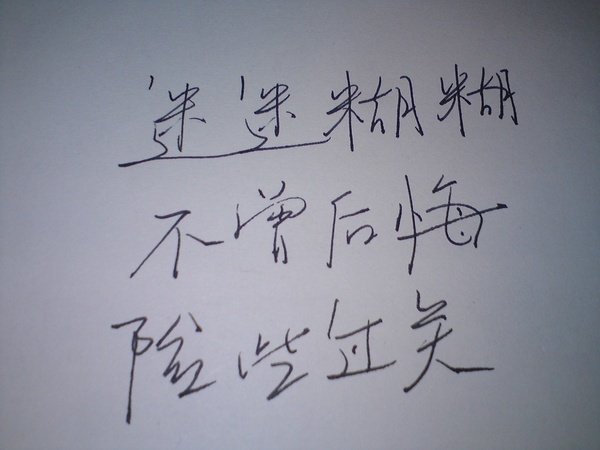 迷迷糊糊
不曾后悔
险些过关